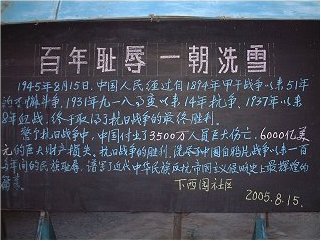 百年耻辱一朝洗雪
1945年8月15日,中国人民经过自1894年甲午战争以来51年
的不懈斗争,1931年九一八事变以来14年抗争,1937年以来
8年血战,终于取得了抗日战争的最终胜利.
整个抗日战争中,中国付出了3500万人员巨大伤亡,6000亿美
元的巨大财产损失。抗日战争的胜利,洗尽了中国自鸦片战争以来一百
多年间的民族耻辱,谱写了近代中华民族反抗帝国主义侵略史上最辉煌的
篇章.
下西园社区
2005.8.15.